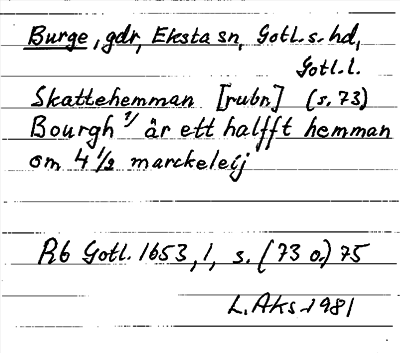 Burge, gdr, Eksta sn, Gotl. s. hd,
Gotl. l.
Skattehemman [rubr.] (s. 73)
Bourgh 1/ är ett halfft hemman
om 4 1/2 marckeleij
Rb Gotl. 1653, 1, s. (73 o.) 75
L. Aks. 1981